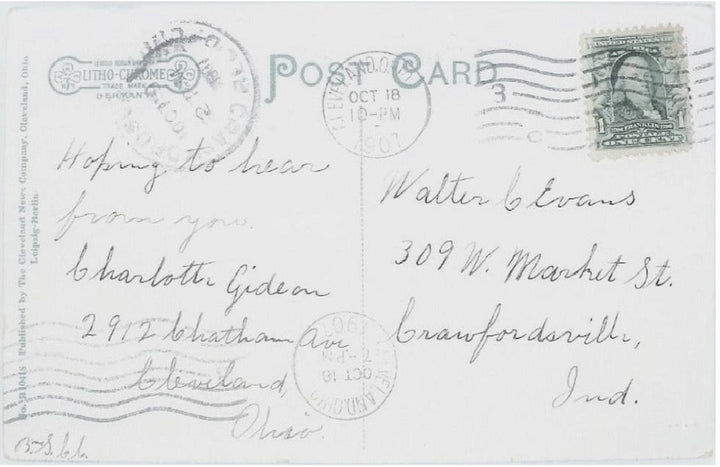 No. B10416 Published by The Cleveland News Company, Cleveland, Ohio
Leipzig-Berlin
LITHO-CHROME
TRADE MARK
GERMANY
POST CARD
CLEVELAND, O.
OCT 18
10-PM
1907
3
C
UNITED STATES OF AMERICA
1 FRANKLIN 1
POSTAGE
ONE CENT
Hoping to hear
from you.
Charlotte Gideon
2912 Chatham Av
Cleveland,
Ohio.
Walter C Evans
309 W. Market St.
Crawfordsville,
Ind.
CLEVELAND, OHIO
OCT 18
7-PM
1907